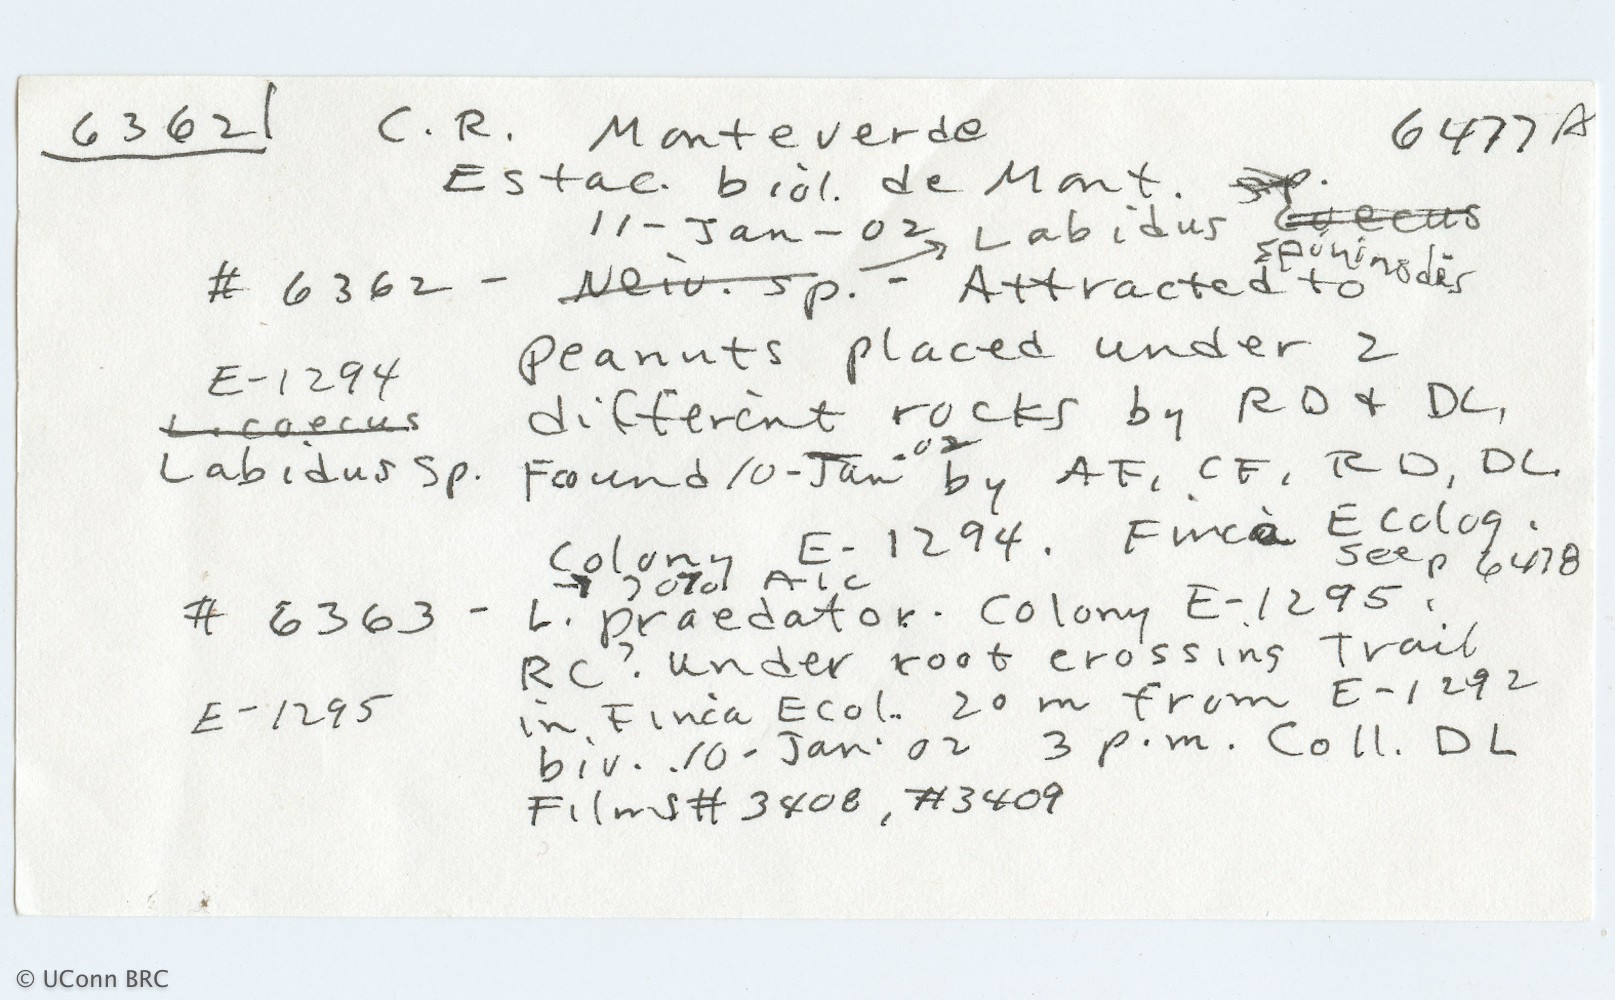 6362 C.R. Monteverde 6477A
Estac. biol. de Mont. sp.
11-Jan-02 Labidus coecus
spininodis
# 6362 - Neiv. sp. - Attracted to
Peanuts placed under 2
E-1294
different rocks by RD & DL,
L. coecus
02
Labidus sp. Found 10-Jan- by AF, CF, RD, DL.
Colony E-1294. Finca Ecolog.
see p 6478
70% Alc
# 6363 - L. praedator. Colony E-1295.
RC? under root crossing Trail
E-1295
in Finca Ecol. 20 m from E-1292
biv. 10-Jan-02 3 p.m. Coll. DL
Films # 3408, #3409
© UConn BRC